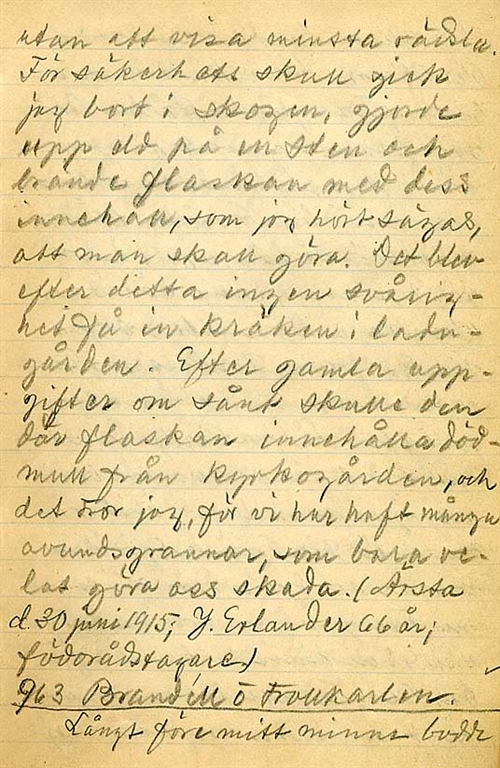 utan att visa minsta rädsla.
För säkerhets skull gick
jag bort i skogen, gjorde
upp eld på en sten och
brände flaskan med dess
innehåll, som jag hört sägas,
att man skall göra. Det blev
efter detta ingen svårig-
het få in kräken i ladu-
gården. Efter gamla upp-
gifter om sånt skulle den
där flaskan innehålla död-
mull från kyrkogården, och
det tror jag, för vi har haft många
avundsgrannar, som bara ve-
lat göra oss skada. (Årsta
d. 30 juni 1915; J. Erlander 66 år;
födorådstagare)
963 Brandéll o Trollkarlen.
Långt före mitt minne bodde